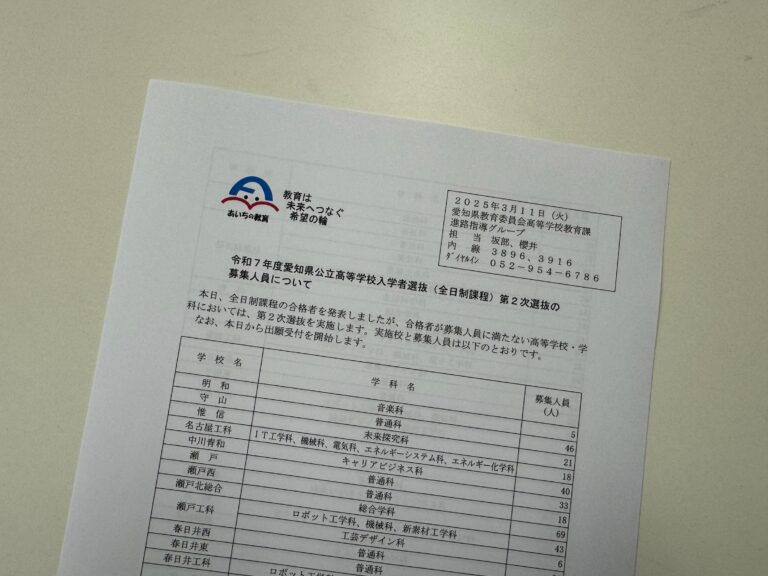 あいちの教育
教育は
未来へつなぐ
希望の輪
2025年3月11日（火）
愛知県教育委員会高等学校教育課
進路指導グループ
担　当　坂部、櫻井
内　線　3896、3916
ﾀﾞｲﾔﾙｲﾝ　052-954-6786
令和7年度愛知県公立高等学校入学者選抜（全日制課程）第2次選抜の
募集人員について
本日、全日制課程の合格者を発表しましたが、合格者が募集人員に満たない高等学校・学
科においては、第2次選抜を実施します。実施校と募集人員は以下のとおりです。
なお、本日から出願受付を開始します。
学校名　学科名　募集人員（人）
明和　音楽科　5
守山　普通科　46
惟信　未来探究科　21
名古屋工科　IT工学科、機械科、電気科、エネルギーシステム科、エネルギー化学科　18
中川青和　キャリアビジネス科　40
瀬戸　普通科　33
瀬戸西　普通科　18
瀬戸北総合　総合学科　69
瀬戸工科　ロボット工学科、機械科、新素材工学科　43
工芸デザイン科　6
春日井西　普通科
春日井東　普通科
春日井工科　ロボット工学科